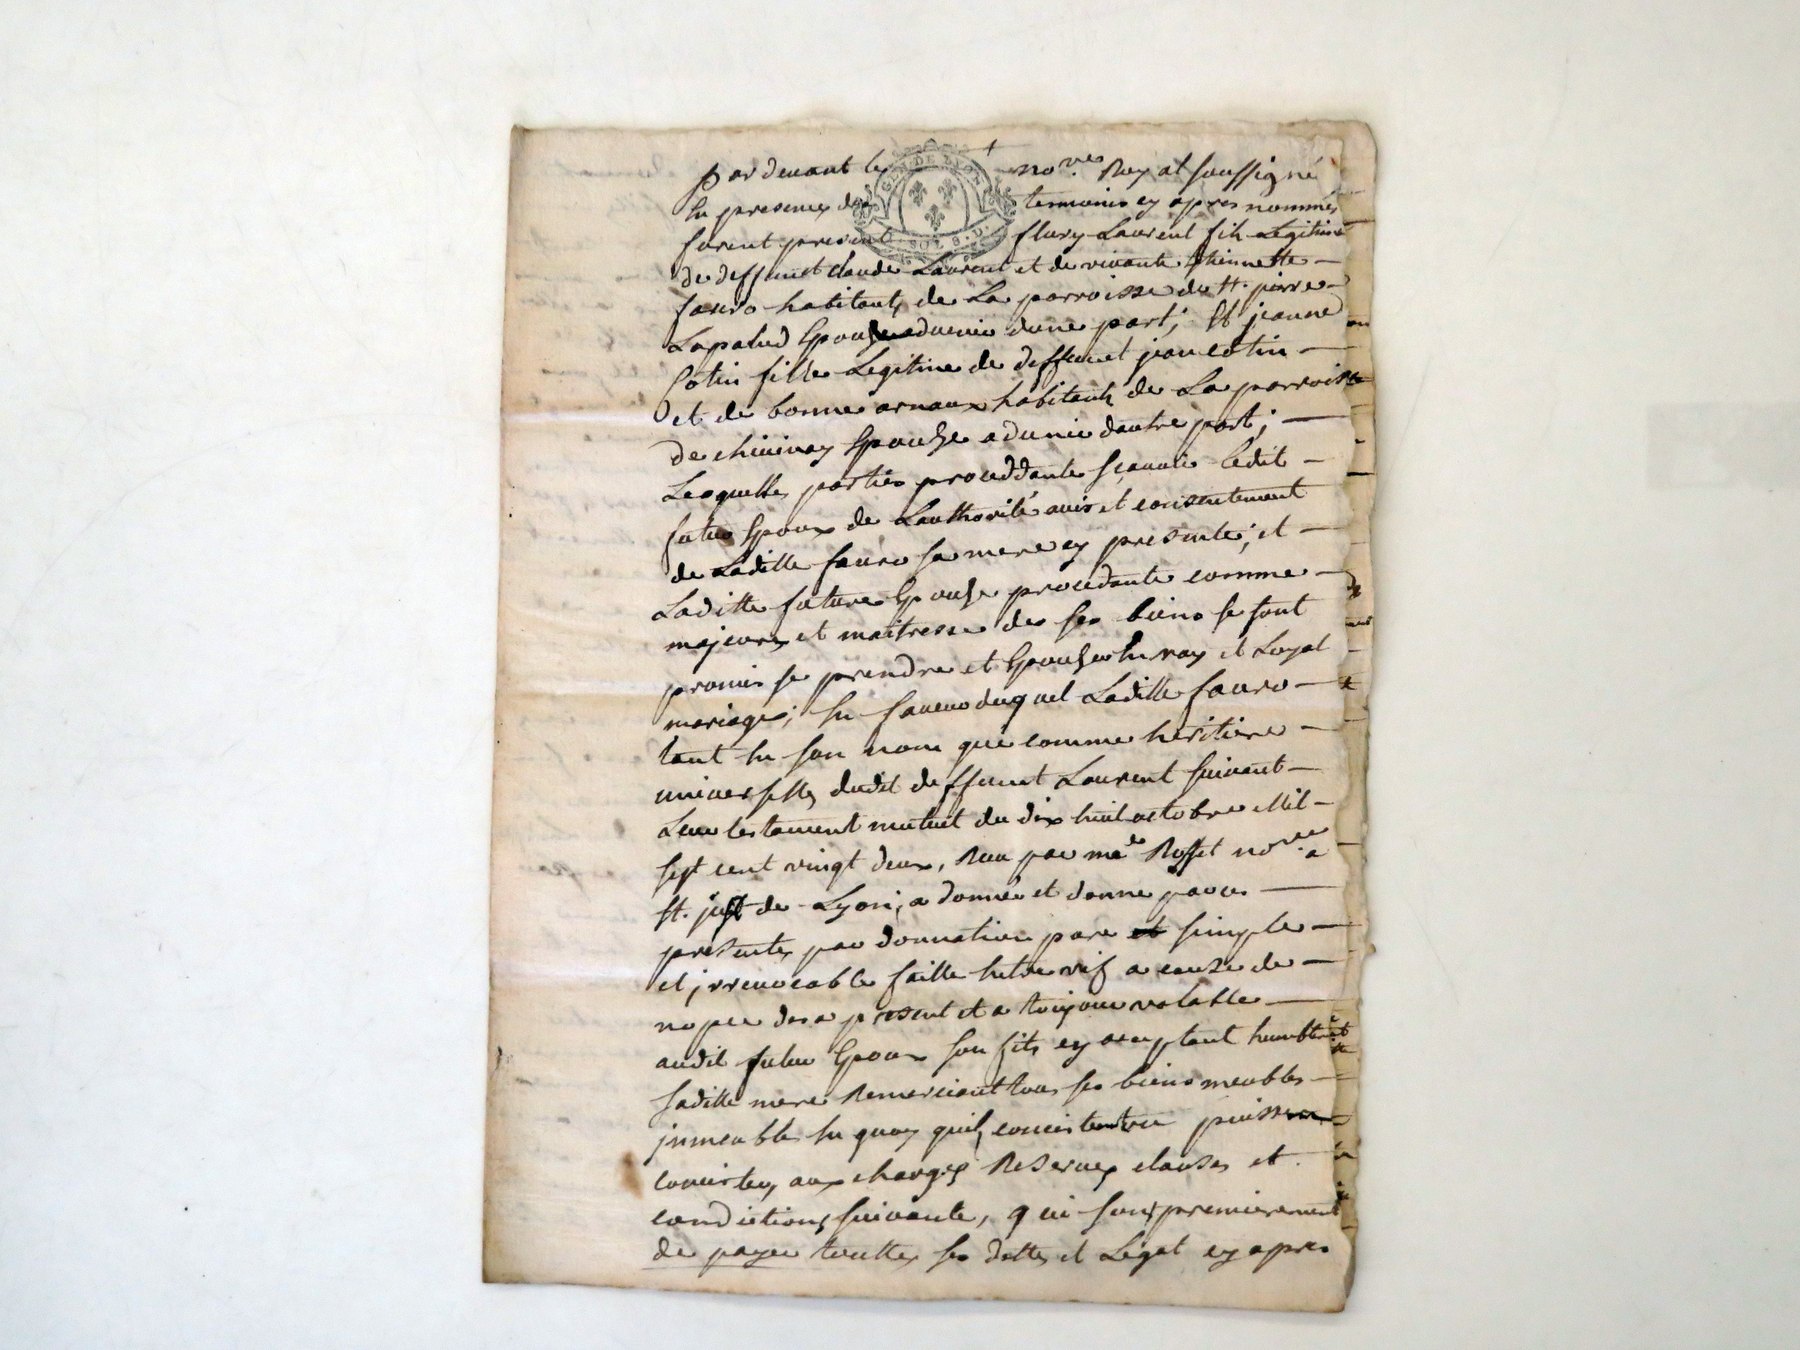 GEN. DE LYON
SOL 8. D.
par devant le no.res Royal soussigné
En presence des temoins cy apres nommés
furent present flury Laurent fils Legitime
de deffunct claude Laurent et de vivante Ethiennette
fauro habitants de La parroisse de St. pierre
Lapalud Epoux advenir dune part; Et jeanne
Cotin fille Legitime de deffunct jean cotin
et de bonne arnaux habitants de La parroisse
de chivinay Epouse advenir dautre part;
Lesquelles parties proceddante sçavoir ledit
futur Epoux de Lauthorité avis et consentement
de Laditte fauro sa mere cy presente; et
Laditte future Epouse procedante comme
majeure et maitresse de ses biens se sont
promis se prendre et Epouser En vray et Loyal
mariage; En faveur duquel Laditte fauro
tant En son nom que comme heritiere
universelle dudit deffunct Laurent suivant
Leur testament mutuel du dix huit octobre Mil
sept cent vingt deux, Receu par me Rosset nore a
St. just de Lyon, a donné et donne par ces
presentes par donnation pure et simple
et jrrevocable faitte Entre vif a cause de
nopce des a present et a toujour valable
audit futur Epoux son fils cy acceptant humblement
saditte mere Remerciant tous ses biens meubles
jmmeuble En quoy quils consistent ou puissen
consister, aux charges Reserves clauses et
condictions suivante, qui sont premierement
de payer toutte ses dettes et Legat cy apres